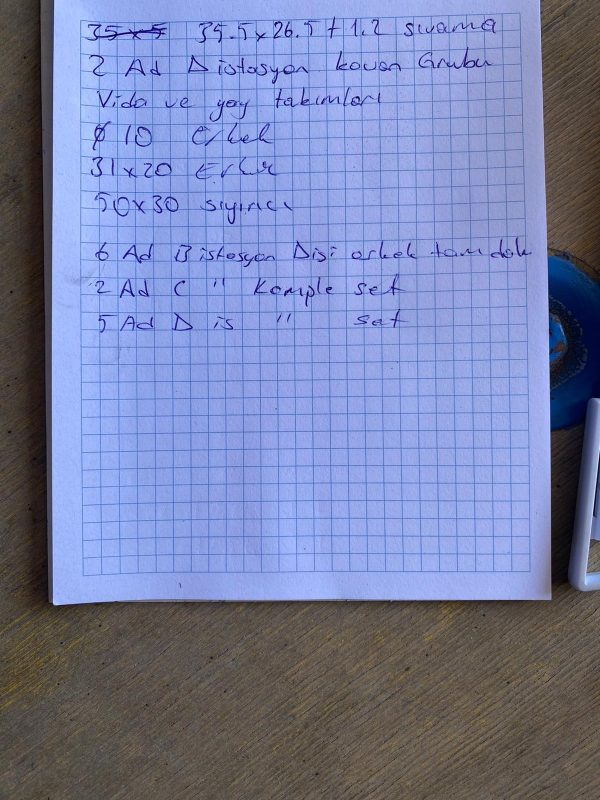 35x5 35.5x26.5 t 1.2 sıvama
2 Ad D istasyon kovan Grubu
Vida ve yay takımları
Ø 10 erkek
31x20 Erkek
50x30 sıyırıcı
6 Ad B istasyon Dişi erkek tam
2 Ad C " Komple set
5 Ad D is " set